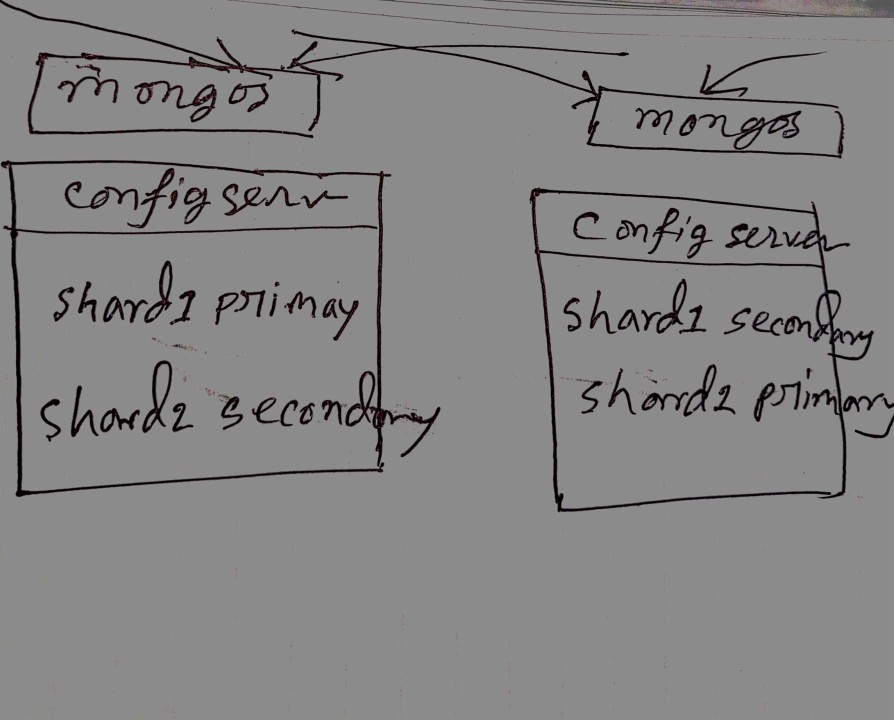 mongos
mongos
Config serv
shard1 primay
shard2 secondary
Config server
shard1 secondary
shard2 primary